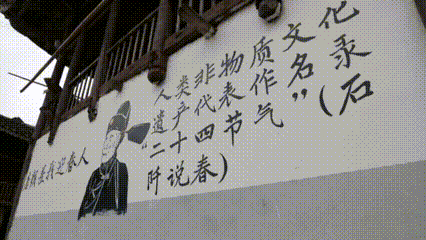 人类非物质文化
遗产代表作名录
“二十四节气”(石
阡说春)
我迎春人